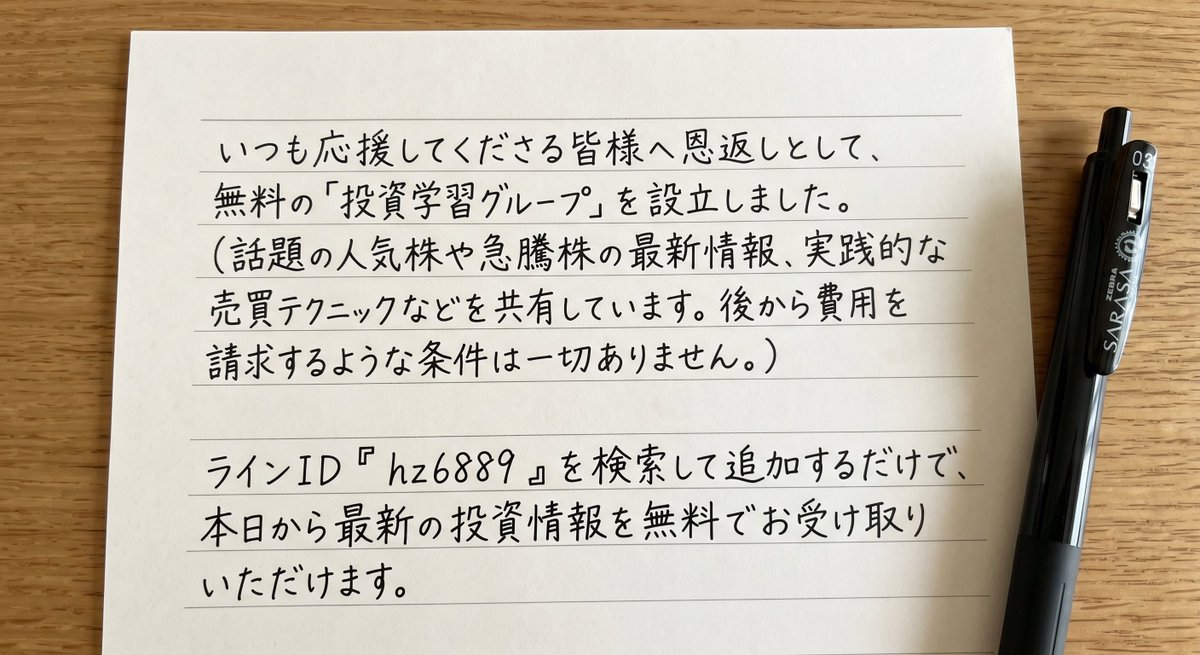 いつも応援してくださる皆様へ恩返しとして、
無料の「投資学習グループ」を設立しました。
(話題の人気株や急騰株の最新情報、実践的な
売買テクニックなどを共有しています。後から費用を
請求するような条件は一切ありません。)
ラインID『 hz6889 』を検索して追加するだけで、
本日から最新の投資情報を無料でお受け取り
いただけます。
03
ZEBRA
SARASA